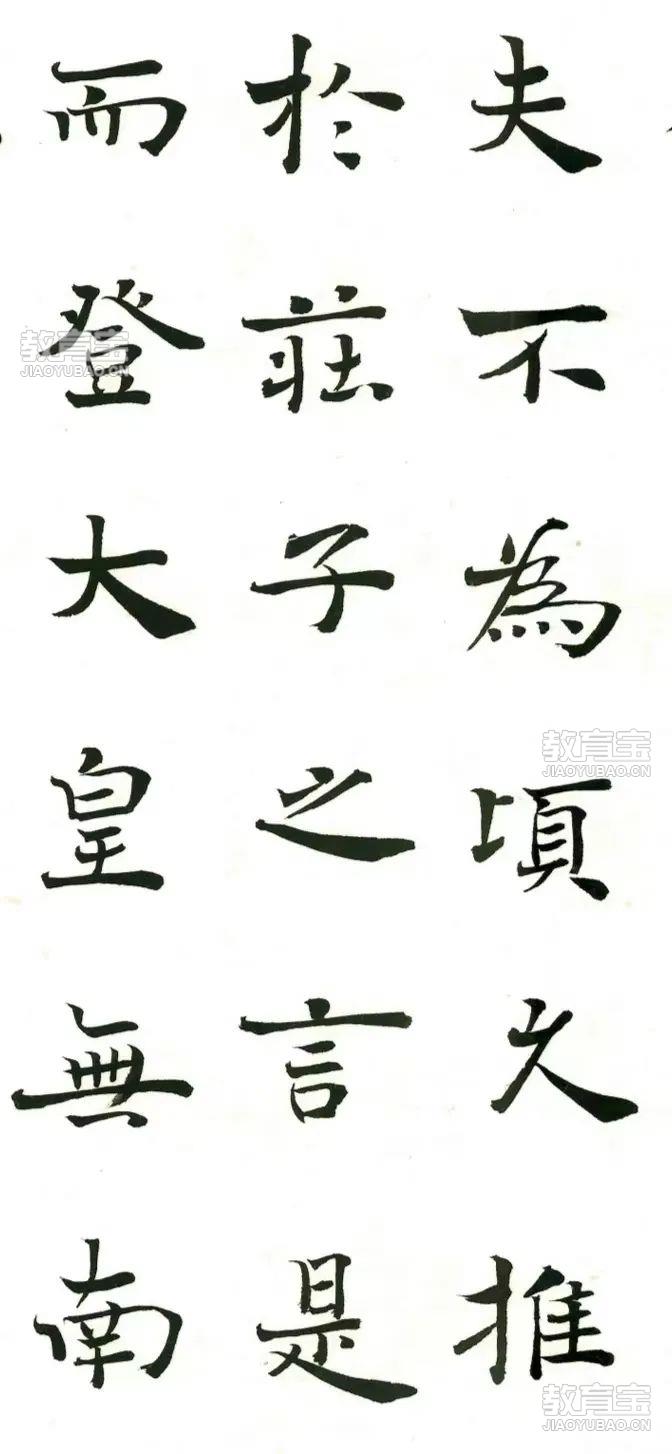 夫不為頃久推
於莊子之言是
而登大皇無南
教育宝
JIAOYUBAO.CN
教育宝
JIAOYUBAO.CN
教育宝
JIAOYUBAO.CN